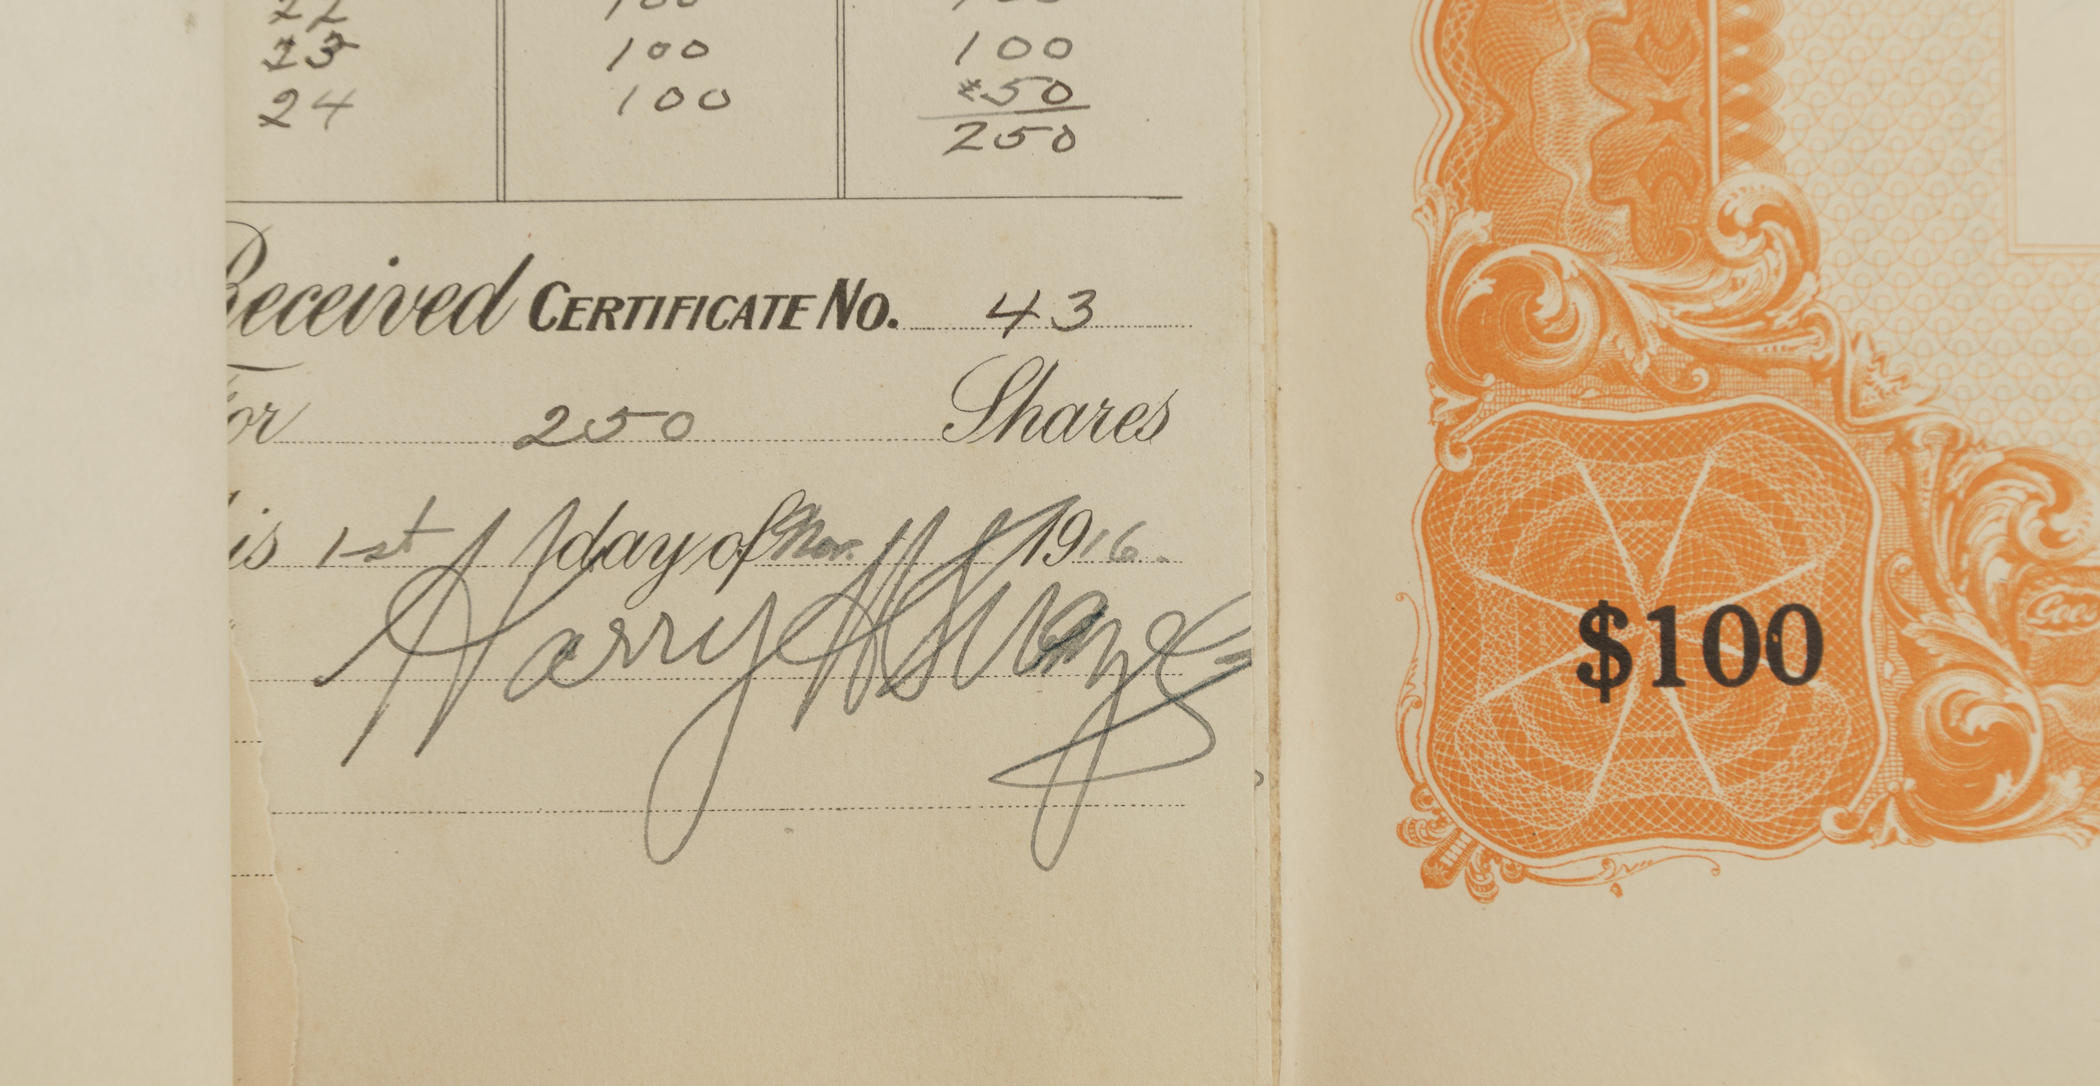 22 100 100
23 100 100
24 100 50
250
Received CERTIFICATE No. 43
For 250 Shares
is 1st day of Nov. 1916.
Harry
$100